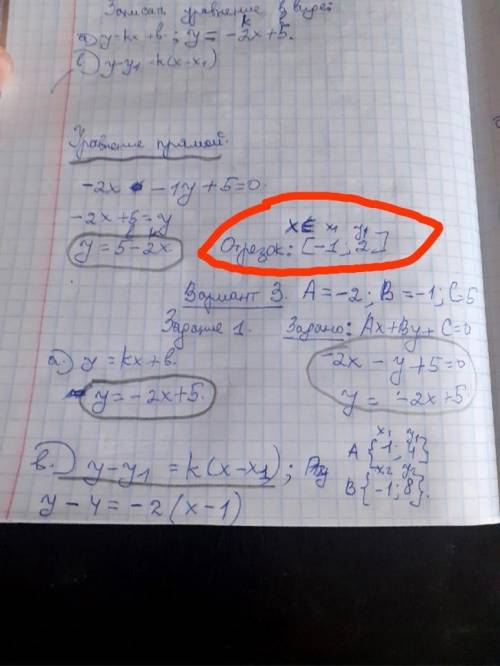 Записать уравнение в виде:
k b
а) y=kx+b; y=-2x+5.
в) y-y₁=k(x-x₁)
Уравнение прямой.
-2x - 1y+5=0.
-2x+5=y
y=5-2x.
x∈ x₁ y₁
Отрезок: [-1; 2]
Вариант 3. A=-2; B=-1; C=5
Задание 1. Задано: Ax+By+C=0
а) y=kx+b.
-2x-y+5=0
y=-2x+5.
y=-2x+5.
x₁ y₁
A{1; 4}
в.) y-y₁=k(x-x₁);
x₂ y₂
B{-1; 8}.
y-4=-2(x-1)